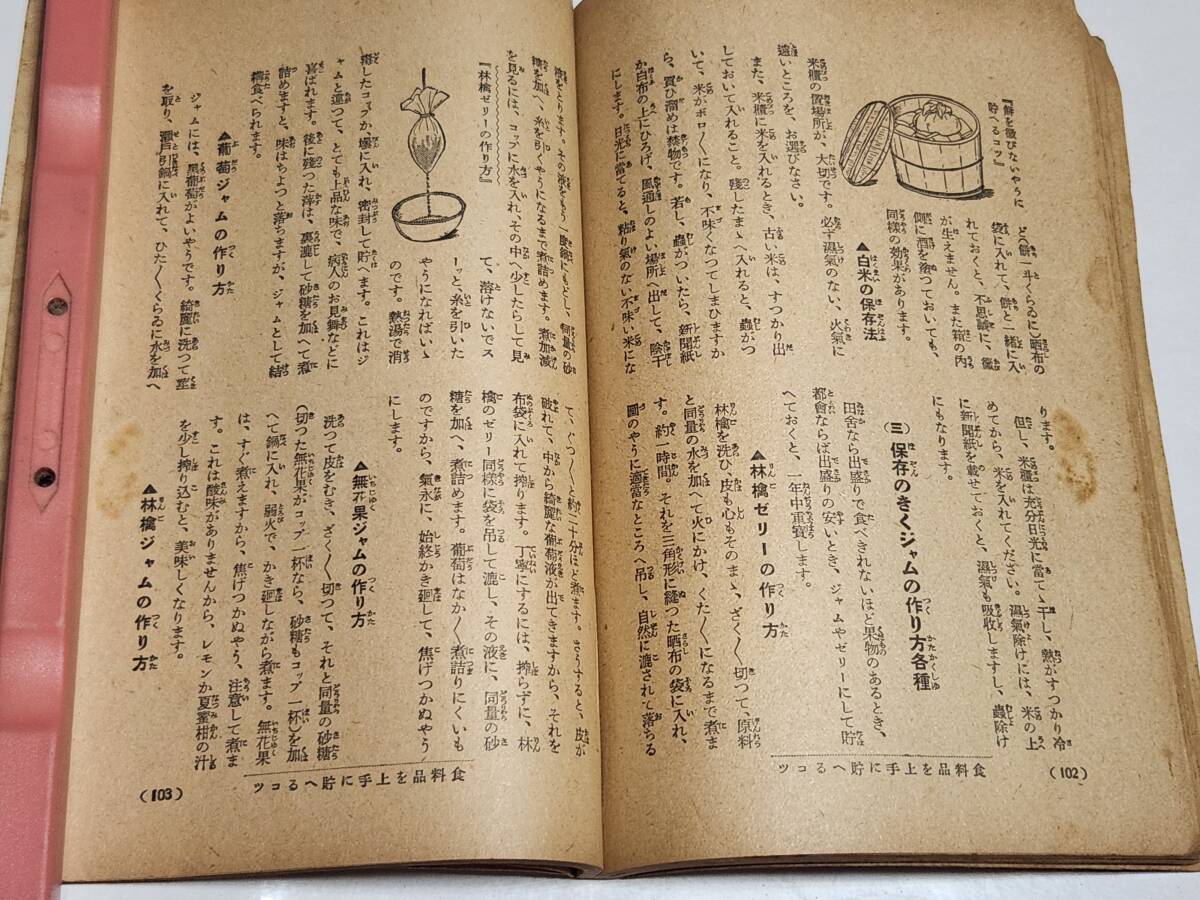 『餅を黴びないやうに
貯へるコツ』
ど(餅一斗くらゐに)晒布の
袋に入れて、餅と一緒に入
れておくと、不思議に、黴
が生えません。また箱の内
側に酒を塗つておいても、
同樣の効果があります。
▲白米の保存法
米櫃の置場所が、大切です。必ず濕氣のない、火氣に
遠いところを、お選びなさい。
また、米櫃に米を入れるとき、古い米は、すつかり出
しておいて入れること。殘したまゝ入れると、蟲がつ
いて、米がボロ〱になり、不味くなつてしまひますか
ら、買ひ溜めは禁物です。若し、蟲がついたら、新聞紙
か白布の上にひろげ、風通しのよい場所へ出して、陰干
にします。日光に當てると、粘り氣のない不味い米にな
ります。
但し、米櫃は充分日光に當てゝ干し、熱がすつかり冷
めてから、米を入れてください。濕氣除けには、米の上
に新聞紙を載せておくと、濕氣も吸收しますし、蟲除け
にもなります。
(三)保存のきくジャムの作り方各種
田舍なら出盛りで食べきれないほど果物のあるとき、
都會ならば出盛りの安いとき、ジャムやゼリーにして貯
へておくと、一年中重寶します。
▲林檎ゼリーの作り方
林檎を洗ひ、皮も心もそのまゝ、ざく〱切つて、原料
と同量の水を加へて火にかけ、くた〱になるまで煮ま
す。約一時間。それを三角形に縫つた晒布の袋に入れ、
圖のやうに適當なところへ吊し、自然に漉されて落ちる
食料品を上手に貯へるコツ
(102)
液をとります。その液をもう一度鍋にもどし、同量の砂
糖を加へ、糸を引くやうになるまで煮詰めます。煮加減
を見るには、コップに水を入れ、その中へ少したらして見
て、溶けないでス
ーッと、糸を引いた
やうになればいゝ
のです。熱湯で消
『林檎ゼリーの作り方』
毒したコップか、壜に入れ、密封して貯へます。これはジ
ャムと違つて、とても上品な味で、病人のお見舞などに
喜ばれます。後に殘つた滓は、裏漉して砂糖を加へて煮
詰めますと、味はちよつと落ちますが、ジャムとして結
構食べられます。
▲葡萄ジャムの作り方
ジャムには、黑葡萄がよいやうです。綺麗に洗つて莖
を取り、瀨戸引鍋に入れて、ひた〱くらゐに水を加へ
て、ぐつ〱と約二十分ほど煮ます。さうすると、皮が
破れて、中から綺麗な葡萄液が出てきますから、それを
布袋に入れて搾ります。丁寧にするには、搾らずに、林
檎のゼリー同樣に袋を吊して漉し、その液に、同量の砂
糖を加へ、煮詰めます。葡萄はなか〱煮詰りにくいも
のですから、氣永に、始終かき廻して、焦げつかぬやう
にします。
▲無花果ジャムの作り方
洗つて皮をむき、ざく〱切つて、それと同量の砂糖
(切つた無花果がコップ一杯なら、砂糖もコップ一杯)を加
へて鍋に入れ、弱火で、かき廻しながら煮ます。無花果
は、すぐ煮えますから、焦げつかぬやう、注意して煮ま
す。これは酸味がありませんから、レモンか夏蜜柑の汁
を少し搾り込むと、美味しくなります。
▲林檎ジャムの作り方
食料品を上手に貯へるコツ
(103)